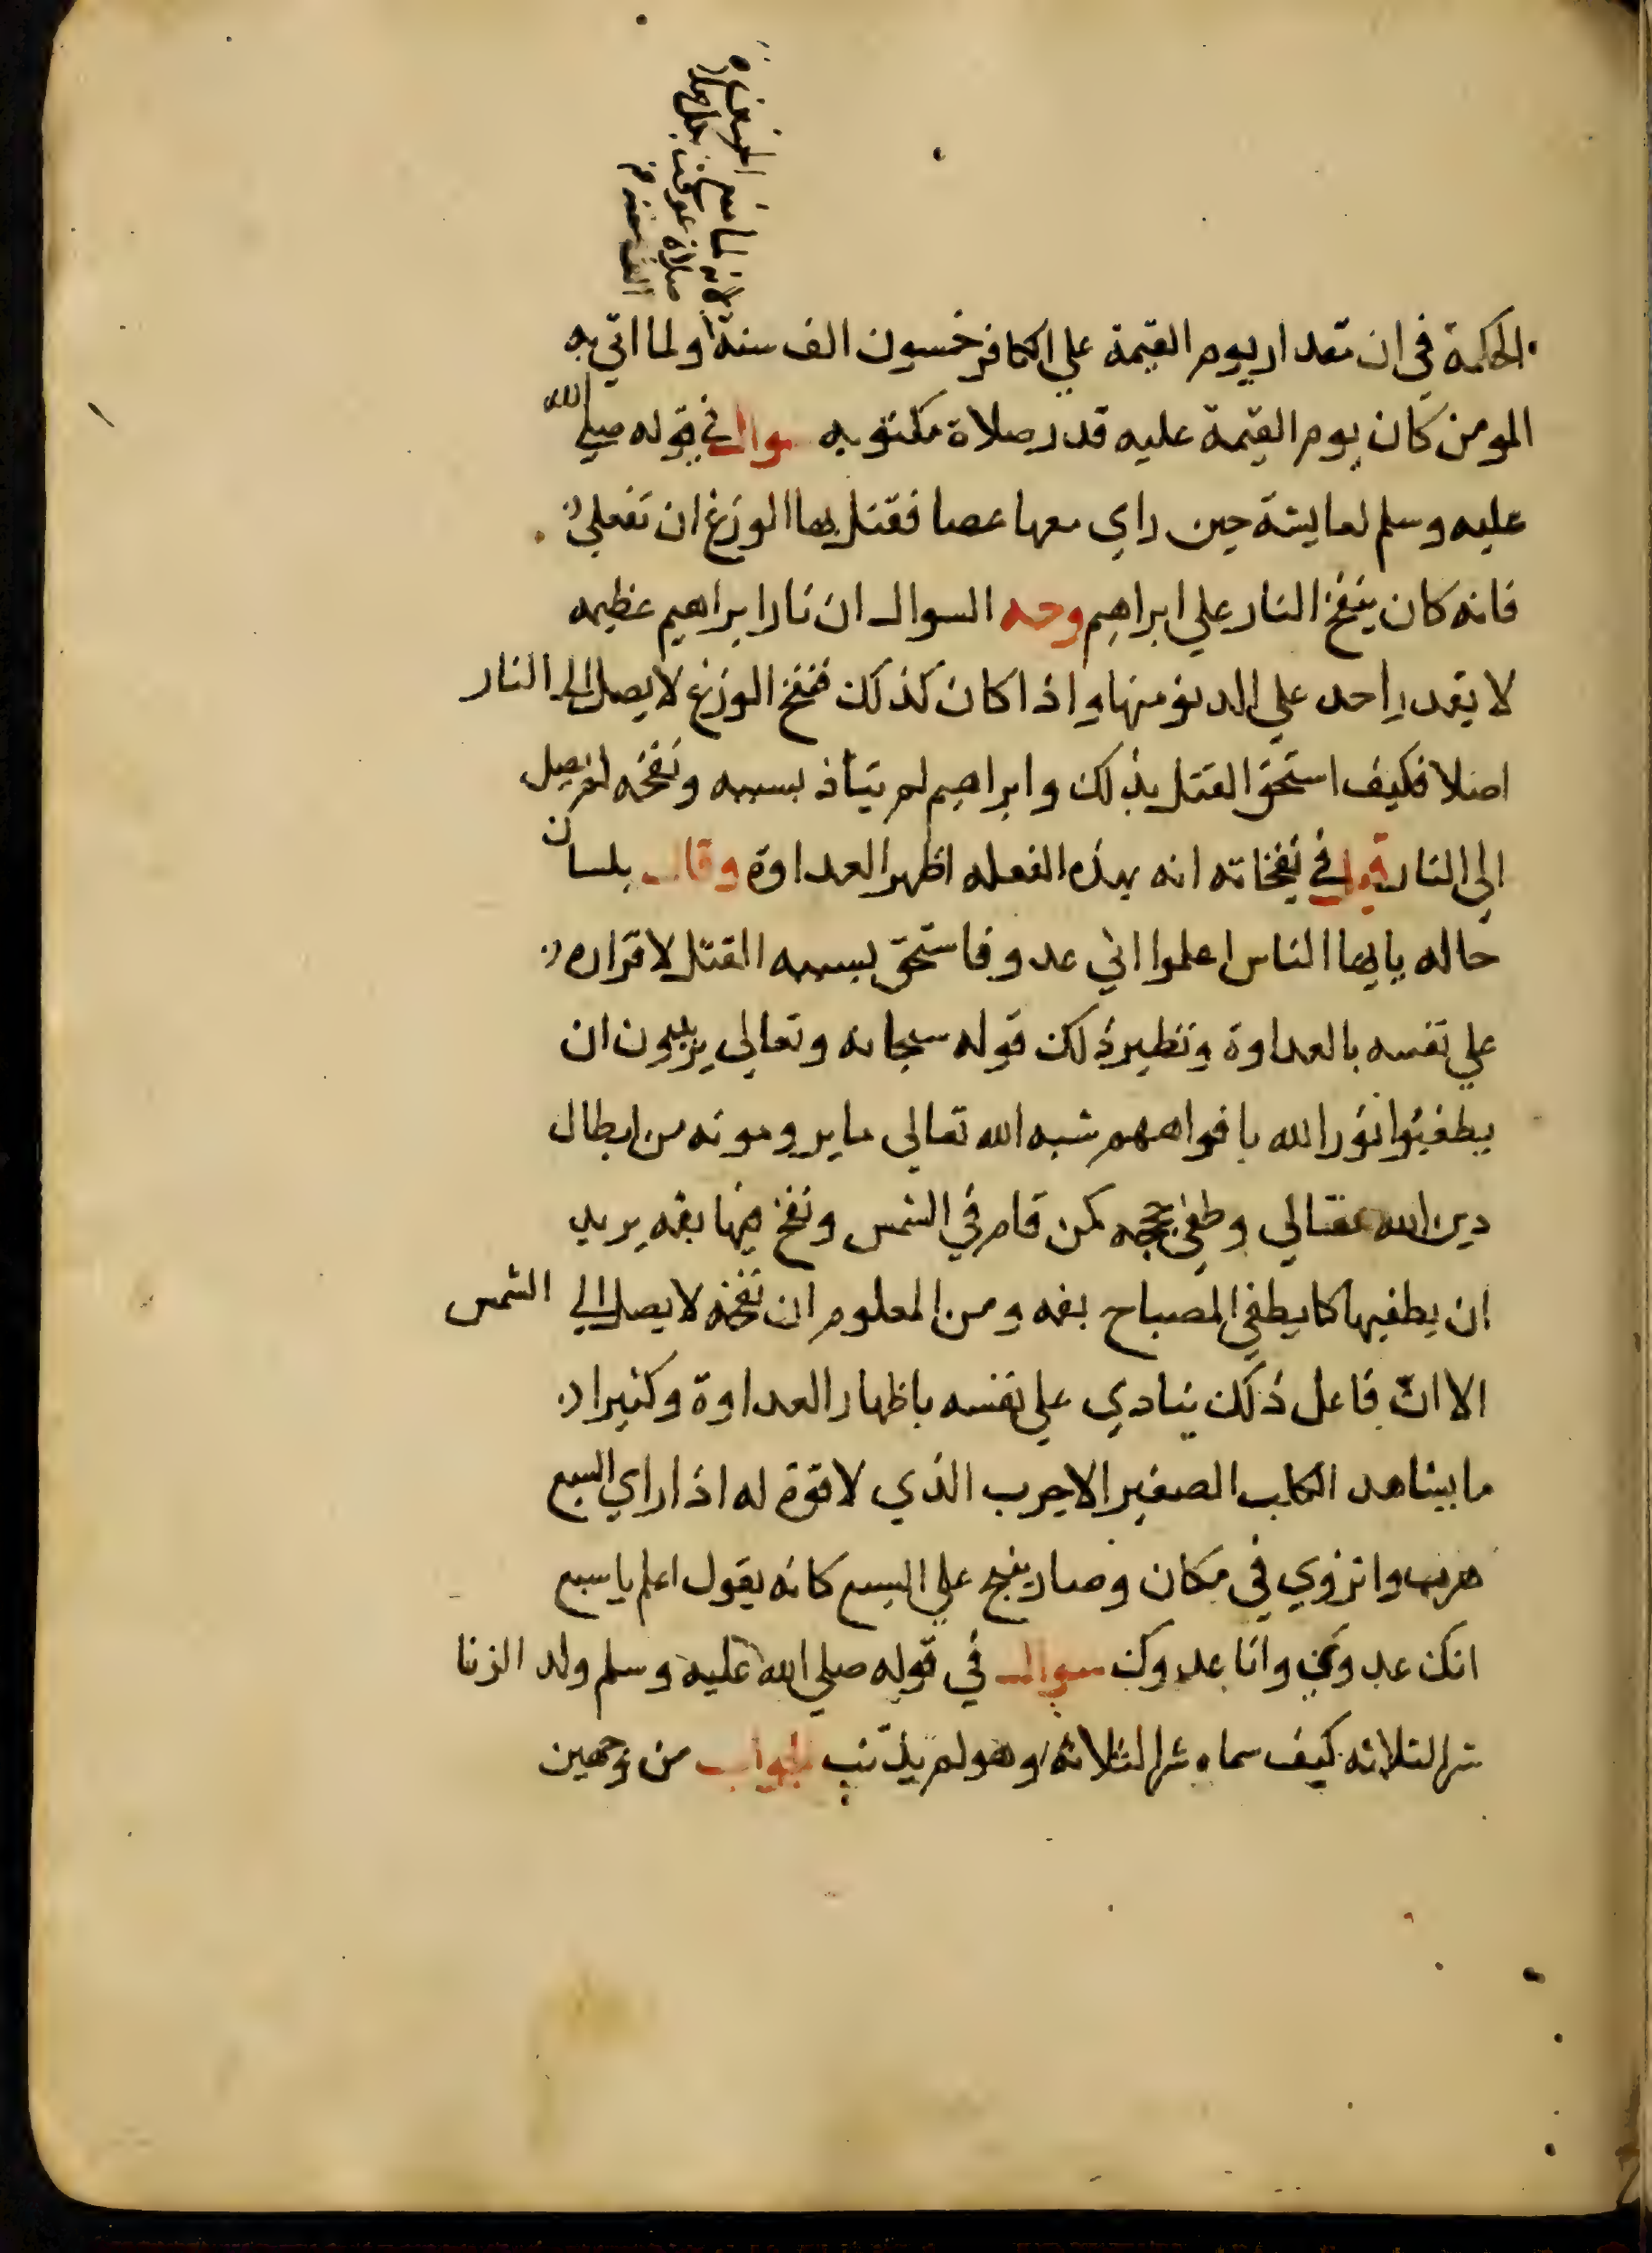 لانه لما ضيع
صلاة عوقب بكل صلاة
الف سنة
الحكمة في ان مقدار يوم القيمة علي الكافر خمسون الف سنة ولما اتي به
المومن كان يوم القيمة عليه قدر صلاة مكتوبه سوال في قوله صلي الله
عليه وسلم لعايشة حين راي معها عصا فقتل بها الوزغ ان تفعلي
فانه كان ينفخ النار علي ابراهيم وجه السوال ان نار ابراهيم عظيمه
لا يقدر احد علي الدنو منها واذا كان كذلك فنفخ الوزغ لا يصل الي النار
اصلا فكيف استحق القتل بذلك وابراهيم لم يتأذ بسببه ونفخه لم يصل
الي النار قيل في نفخاته انه بهذه الفعله اظهر العداوة وقال بلسان
حاله يايها الناس اعلموا اني عدو فاستحق بسببه القتل لاقراره
علي نفسه بالعداوة ونظير ذلك قوله سبحانه وتعالي يريدون ان
يطفئوا نور الله بافواههم شبه الله تعالي ما يرومونه من ابطال
دين الله تعالي وطفي حججه كمن قام في الشمس ونفخ فيها بفه يريد
ان يطفيها كما يطفي المصباح بفه ومن المعلوم ان نفخه لا يصل الي الشمس
الا انّ فاعل ذلك ينادي علي نفسه باظهار العداوة وكثيرا
ما يشاهد الكلب الصغير الاجرب الذي لا قوة له اذا راي السبع
هرب وانزوي في مكان وصار ينبح علي السبع كانه يقول اعلم يا سبع
انك عدوي وانا عدوك سوال في قوله صلي الله عليه وسلم ولد الزنا
شر الثلاثه كيف سماه شر الثلاثه وهو لم يذنب الجواب من وجهين